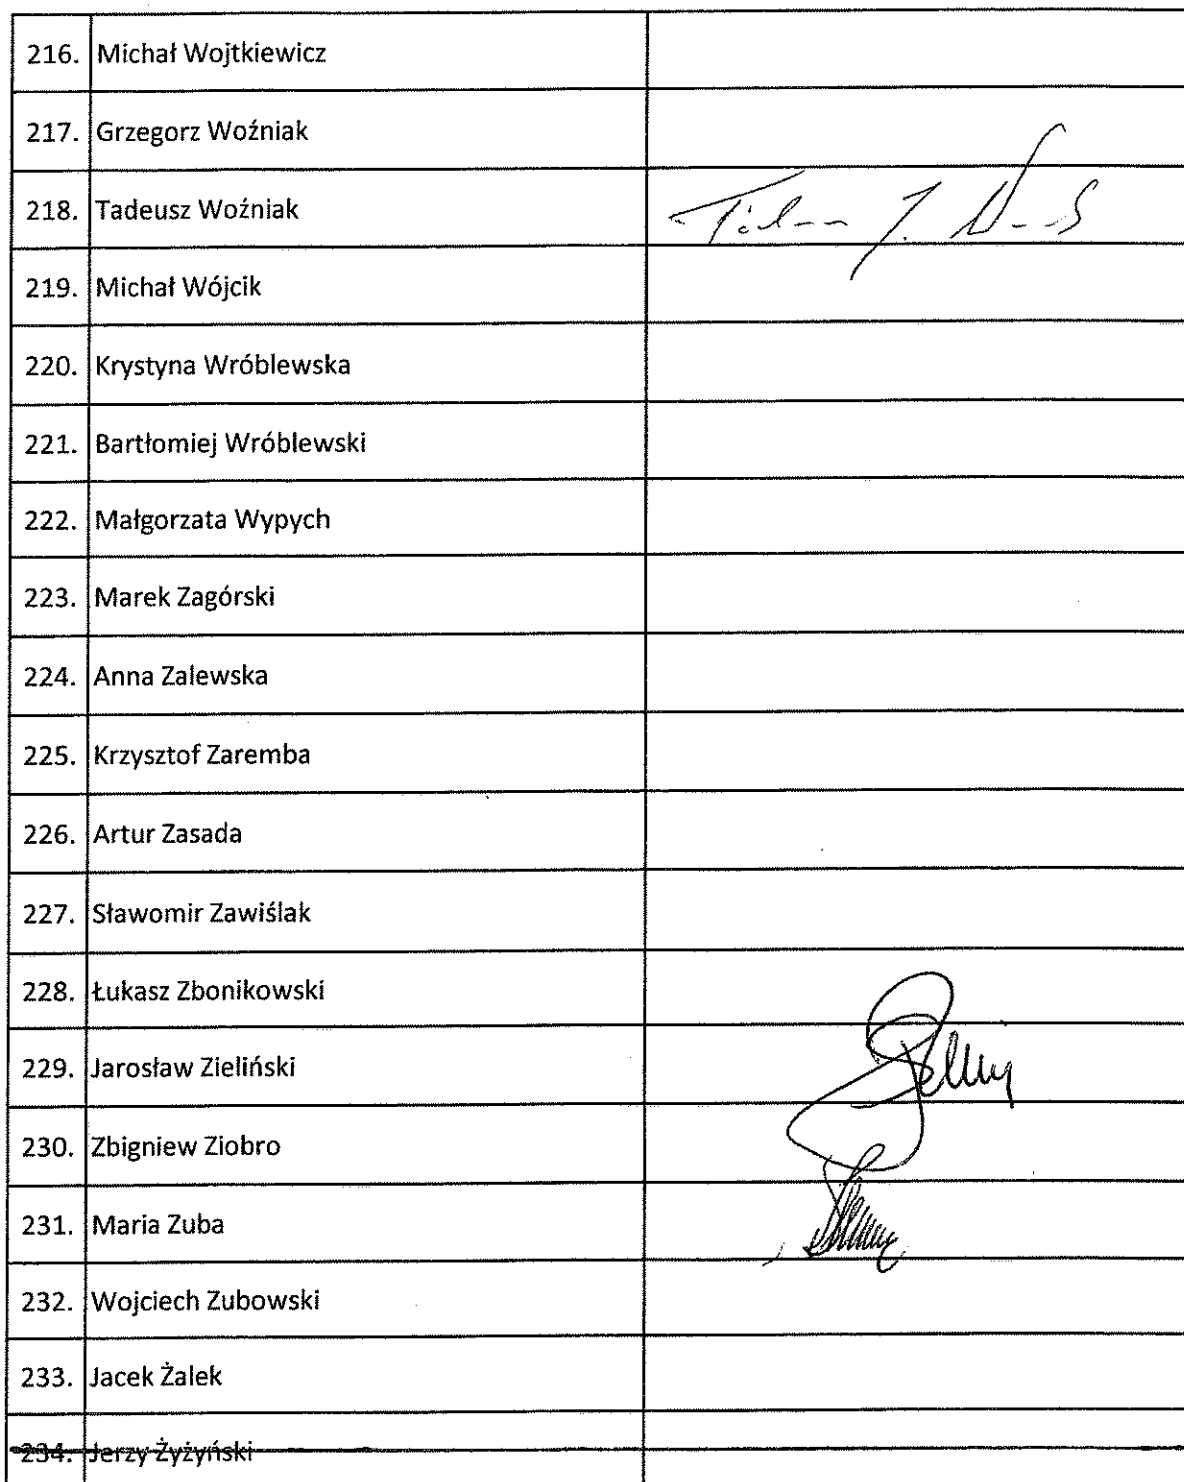 216. Michał Wojtkiewicz
217. Grzegorz Woźniak
218. Tadeusz Woźniak
219. Michał Wójcik
220. Krystyna Wróblewska
221. Bartłomiej Wróblewski
222. Małgorzata Wypych
223. Marek Zagórski
224. Anna Zalewska
225. Krzysztof Zaremba
226. Artur Zasada
227. Sławomir Zawiślak
228. Łukasz Zbonikowski
229. Jarosław Zieliński
230. Zbigniew Ziobro
231. Maria Zuba
232. Wojciech Zubowski
233. Jacek Żalek
234. Jerzy Żyżyński